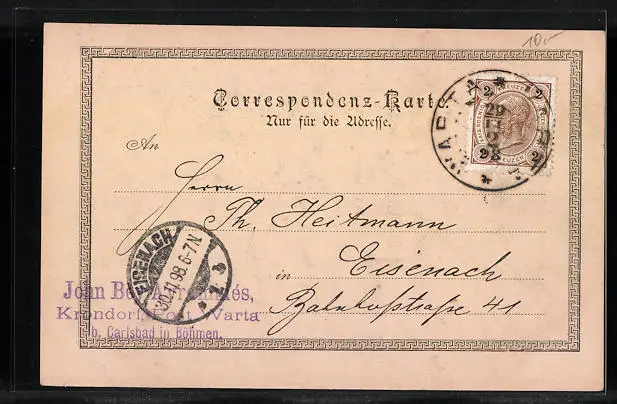 10.-
Correspondenz-Karte
Nur für die Adresse.
WARTA
29 2 98
2 KREUZER 2
2 2
An
Herrn
Th. Heitmann
in Eisenach
Bahnhofstraße 41
EISENACH
30.11.98.6-7N.
John
Krondorf, Post Warta
b. Carlsbad in Böhmen.